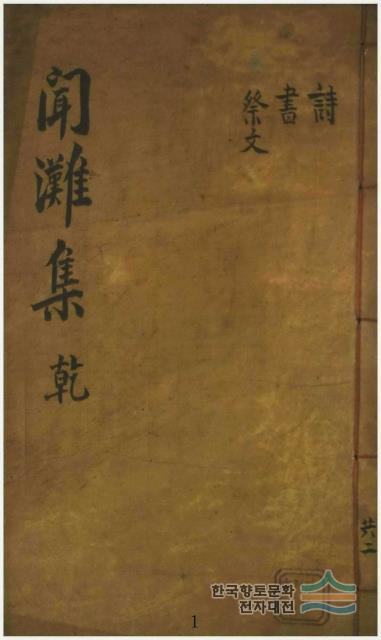 詩
書
祭文
聞灘集 乾
共二
한국향토문화
전자대전
1